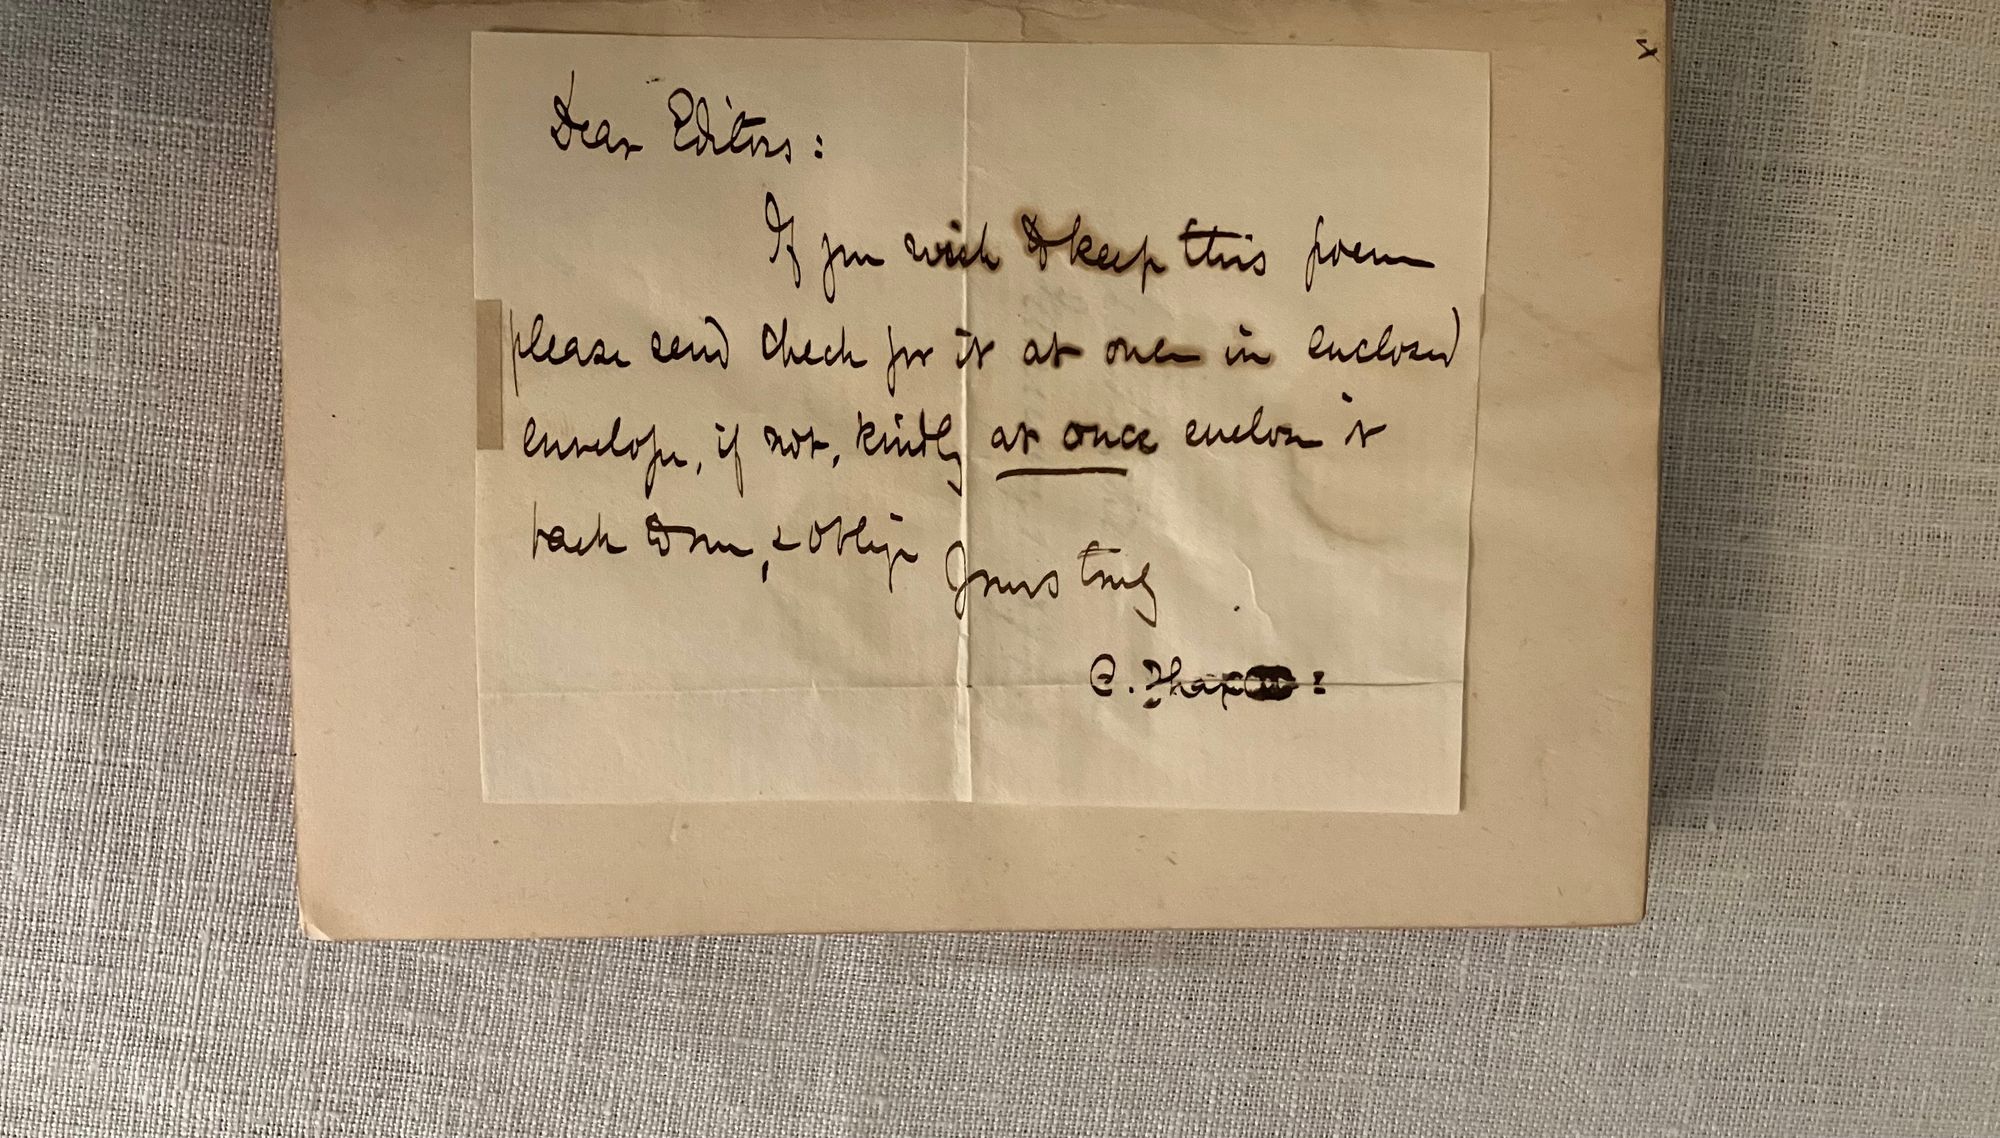 Dear Editors:
If you wish to keep this poem
please send check for it at once in enclosed
envelope, if not, kindly at once enclose it
back to me, & oblige
Yours truly
C.